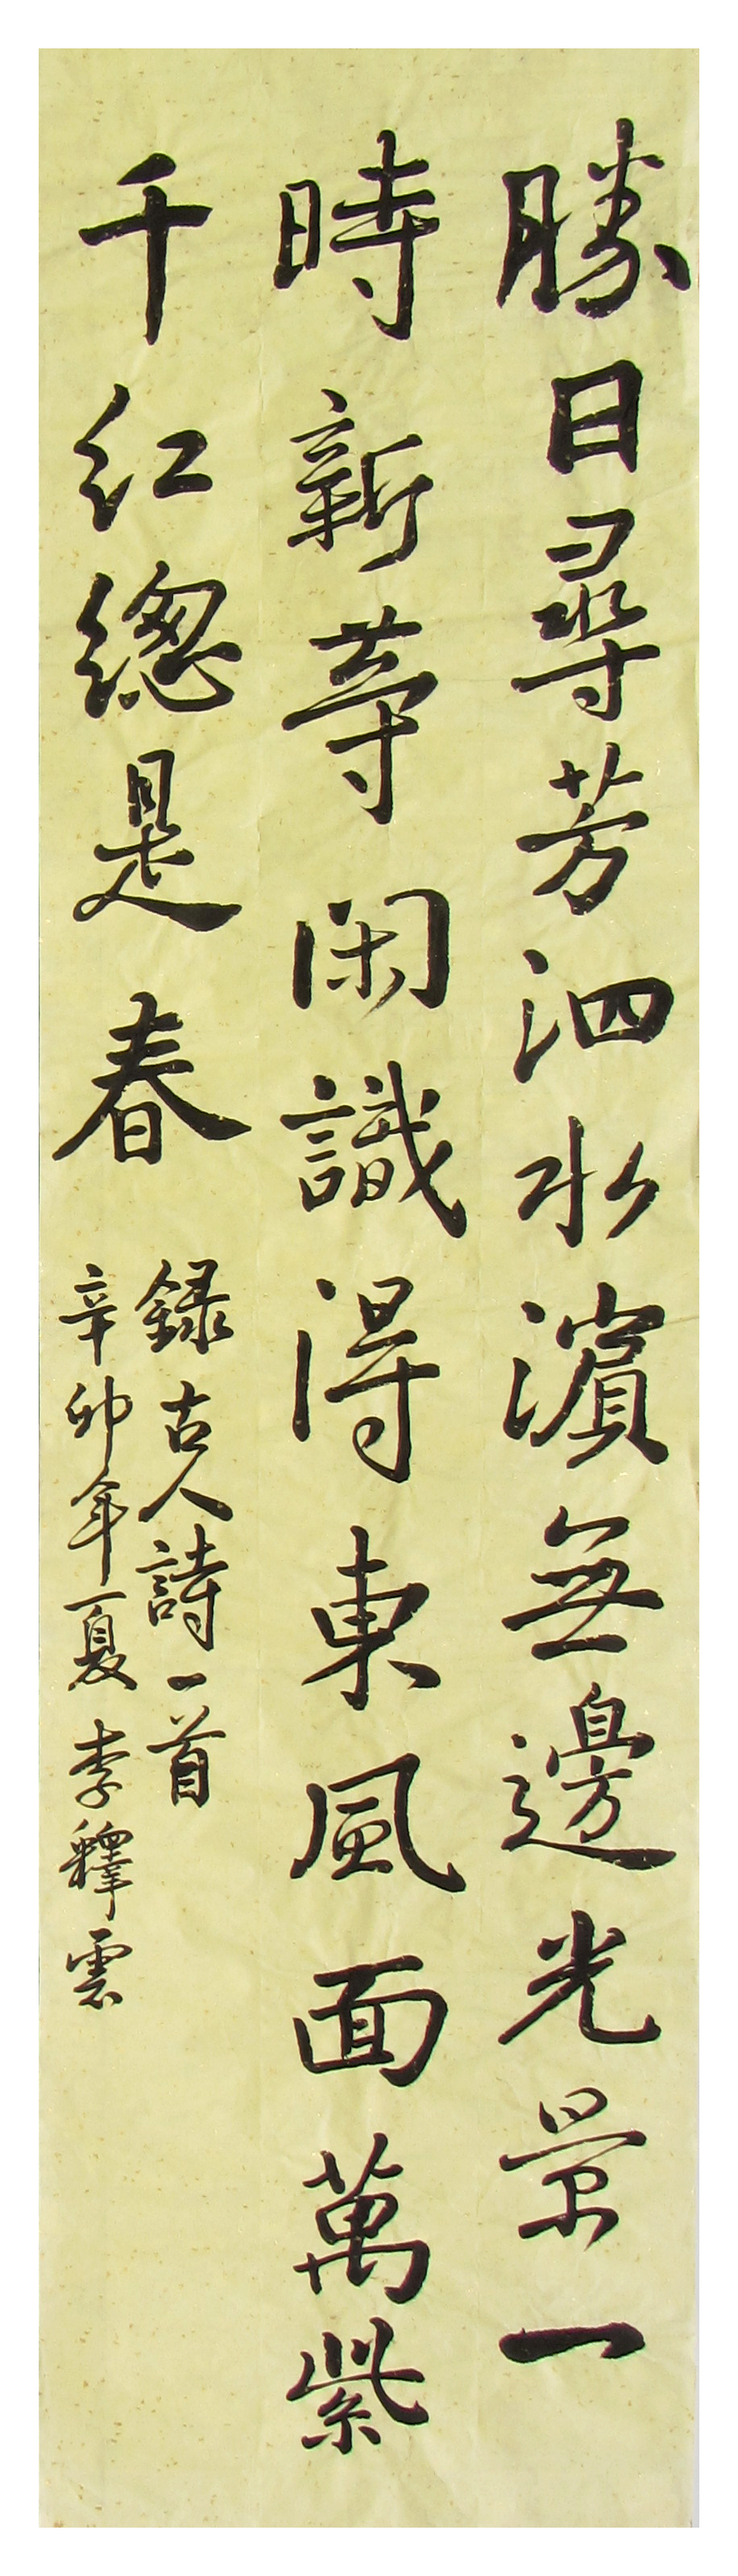 勝日尋芳泗水濱無邊光景一
時新等閑識得東風面萬紫
千紅總是春
録古人詩一首
辛卯年夏李釋雲